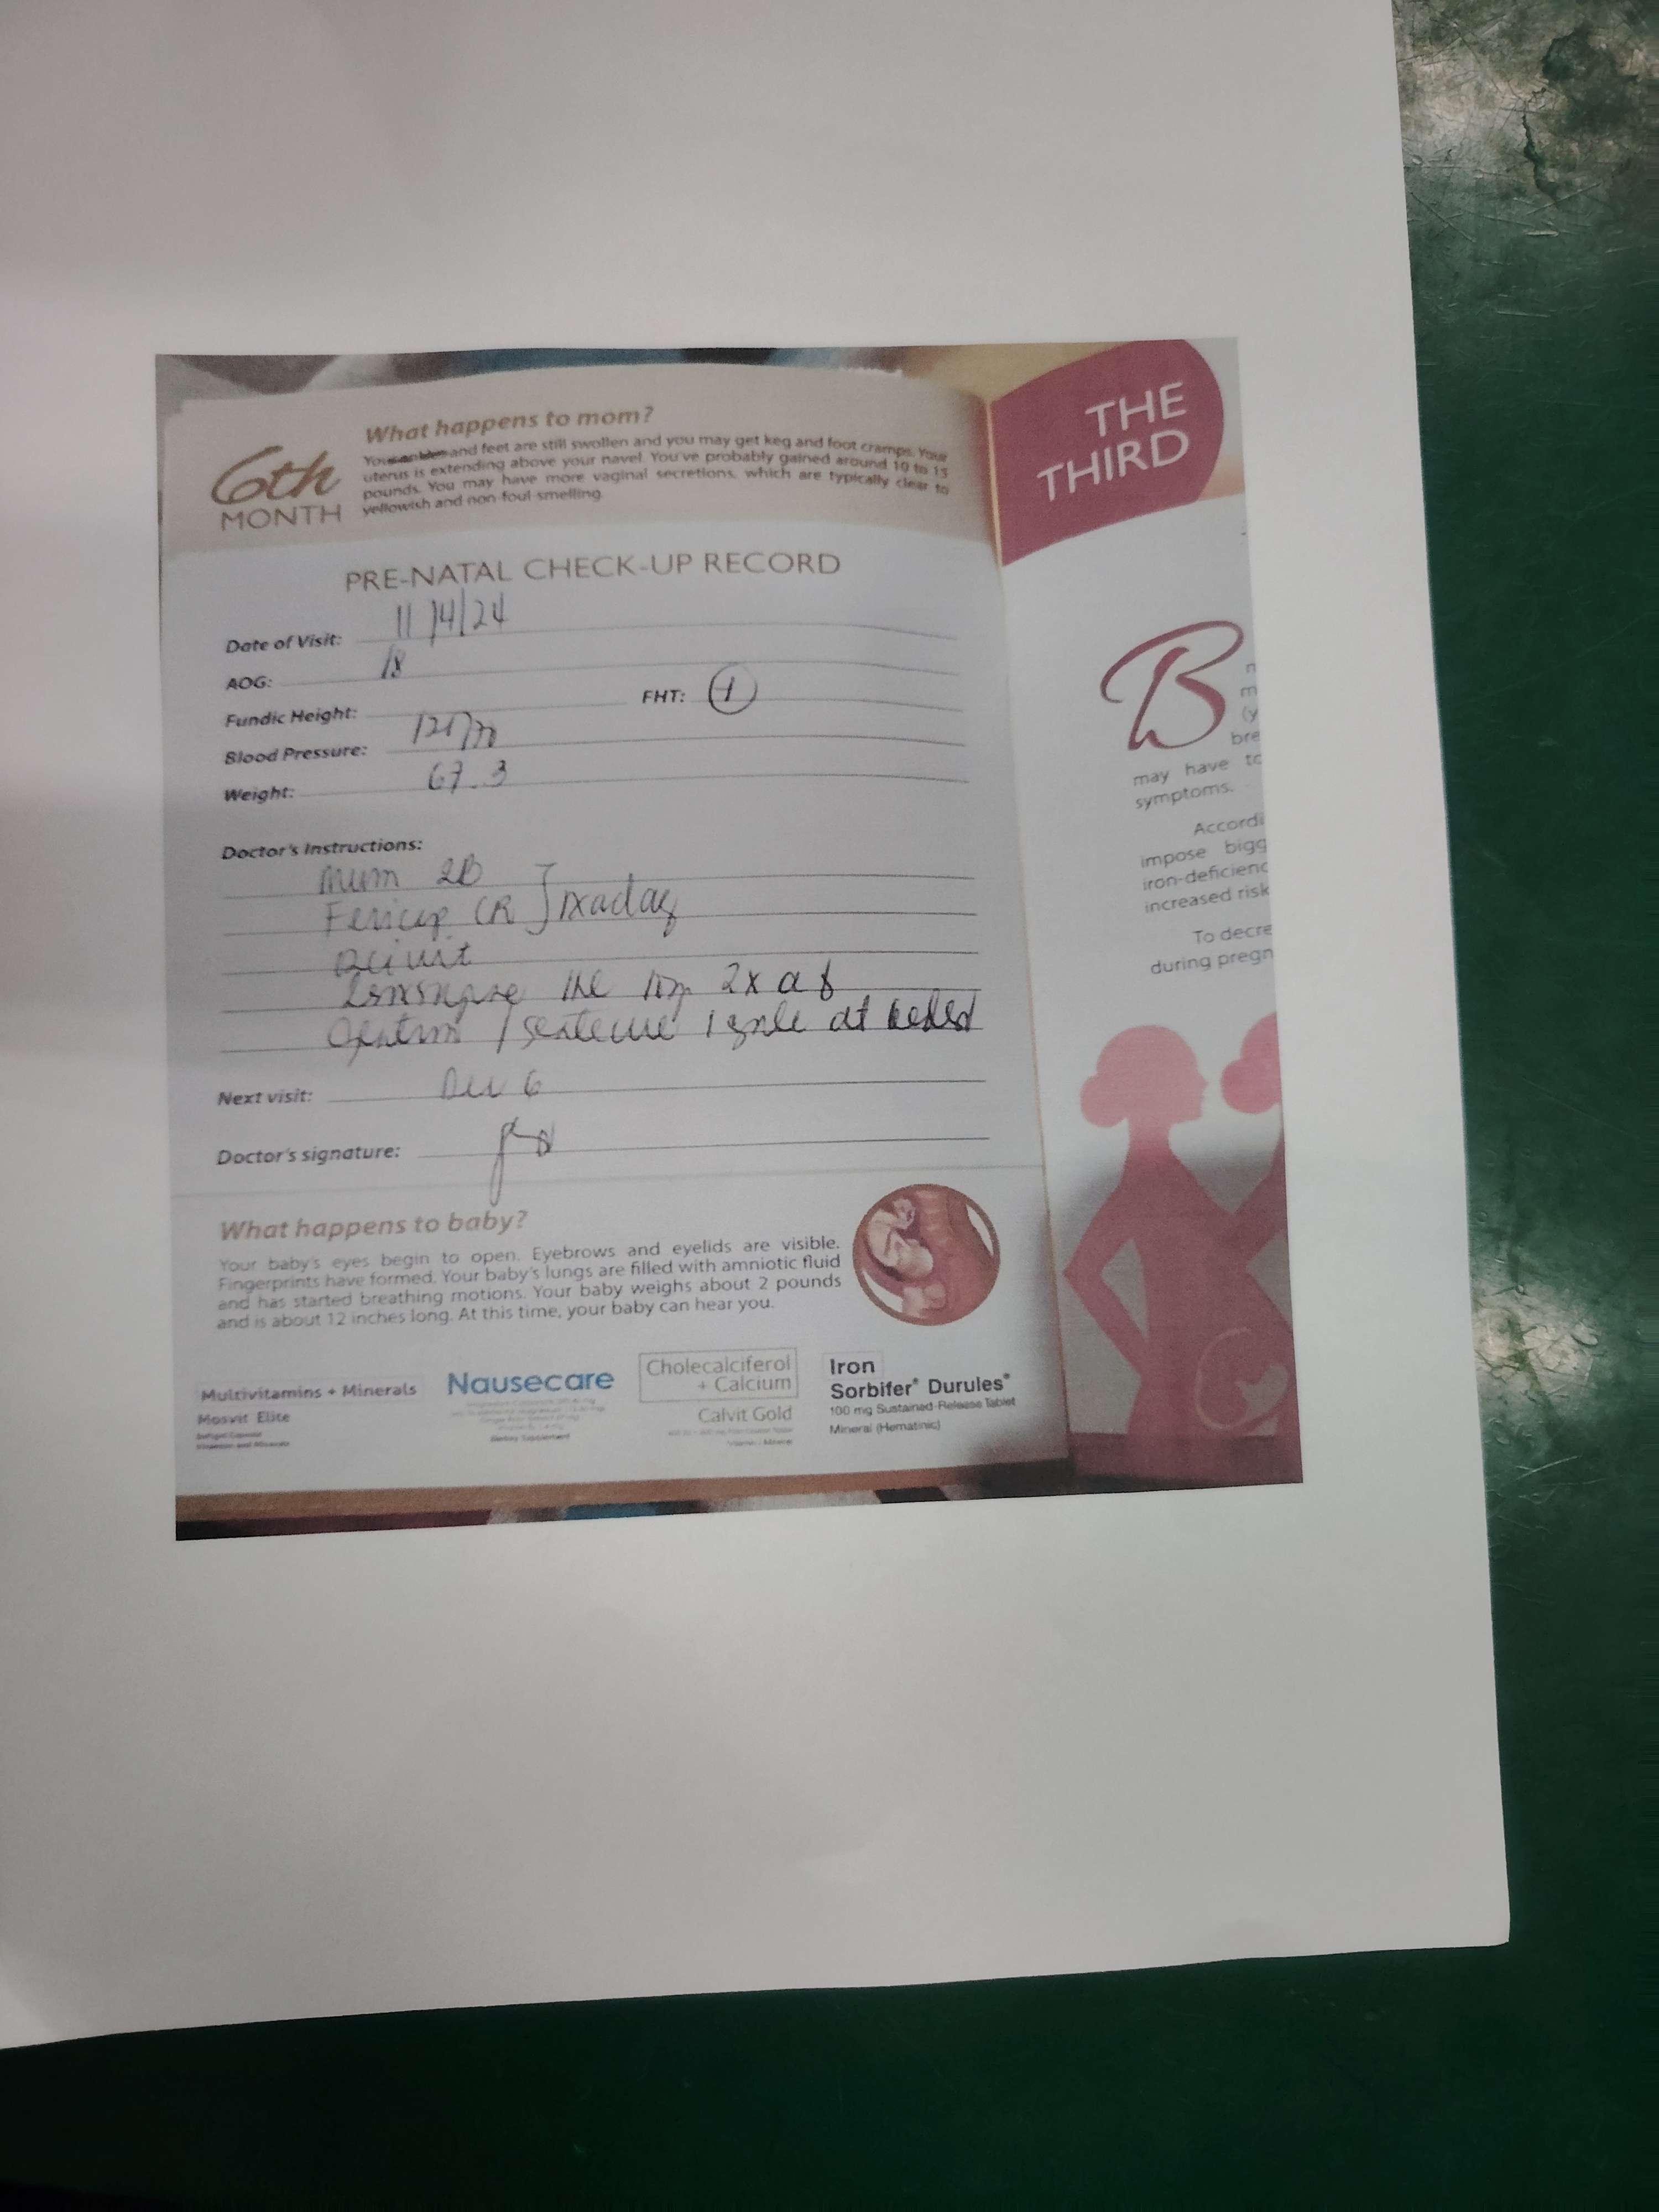 6th
MONTH
What happens to mom?
and feet are still swollen and you may get keg and foot cramps. Your
uterus is extending above your navel. You've probably gained around 10 to 15
pounds. You may have more vaginal secretions, which are typically clear to
yellowish and non-foul-smelling.
PRE-NATAL CHECK-UP RECORD
Date of Visit: 11/4/24
AOG: 18
Fundic Height: FHT: +
Blood Pressure:
Weight: 67.3
Doctor's Instructions:
CR 1x a day
2x a
at
Next visit: Dec 6
Doctor's signature:
What happens to baby?
Your baby's eyes begin to open. Eyebrows and eyelids are visible.
Fingerprints have formed. Your baby's lungs are filled with amniotic fluid
and has started breathing motions. Your baby weighs about 2 pounds
and is about 12 inches long. At this time, your baby can hear you.
Multivitamins + Minerals
Mosvit Elite
Softgel Capsule
Vitamins and Minerals
Nausecare
Dietary Supplement
Cholecalciferol
+ Calcium
Calvit Gold
Iron
Sorbifer® Durules®
100 mg Sustained-Release Tablet
Mineral (Hematinic)
THE
THIRD
B
n
m
(y
bre
may have to
symptoms.
Accordi
impose bigg
iron-deficienc
increased risk
To decre
during pregn